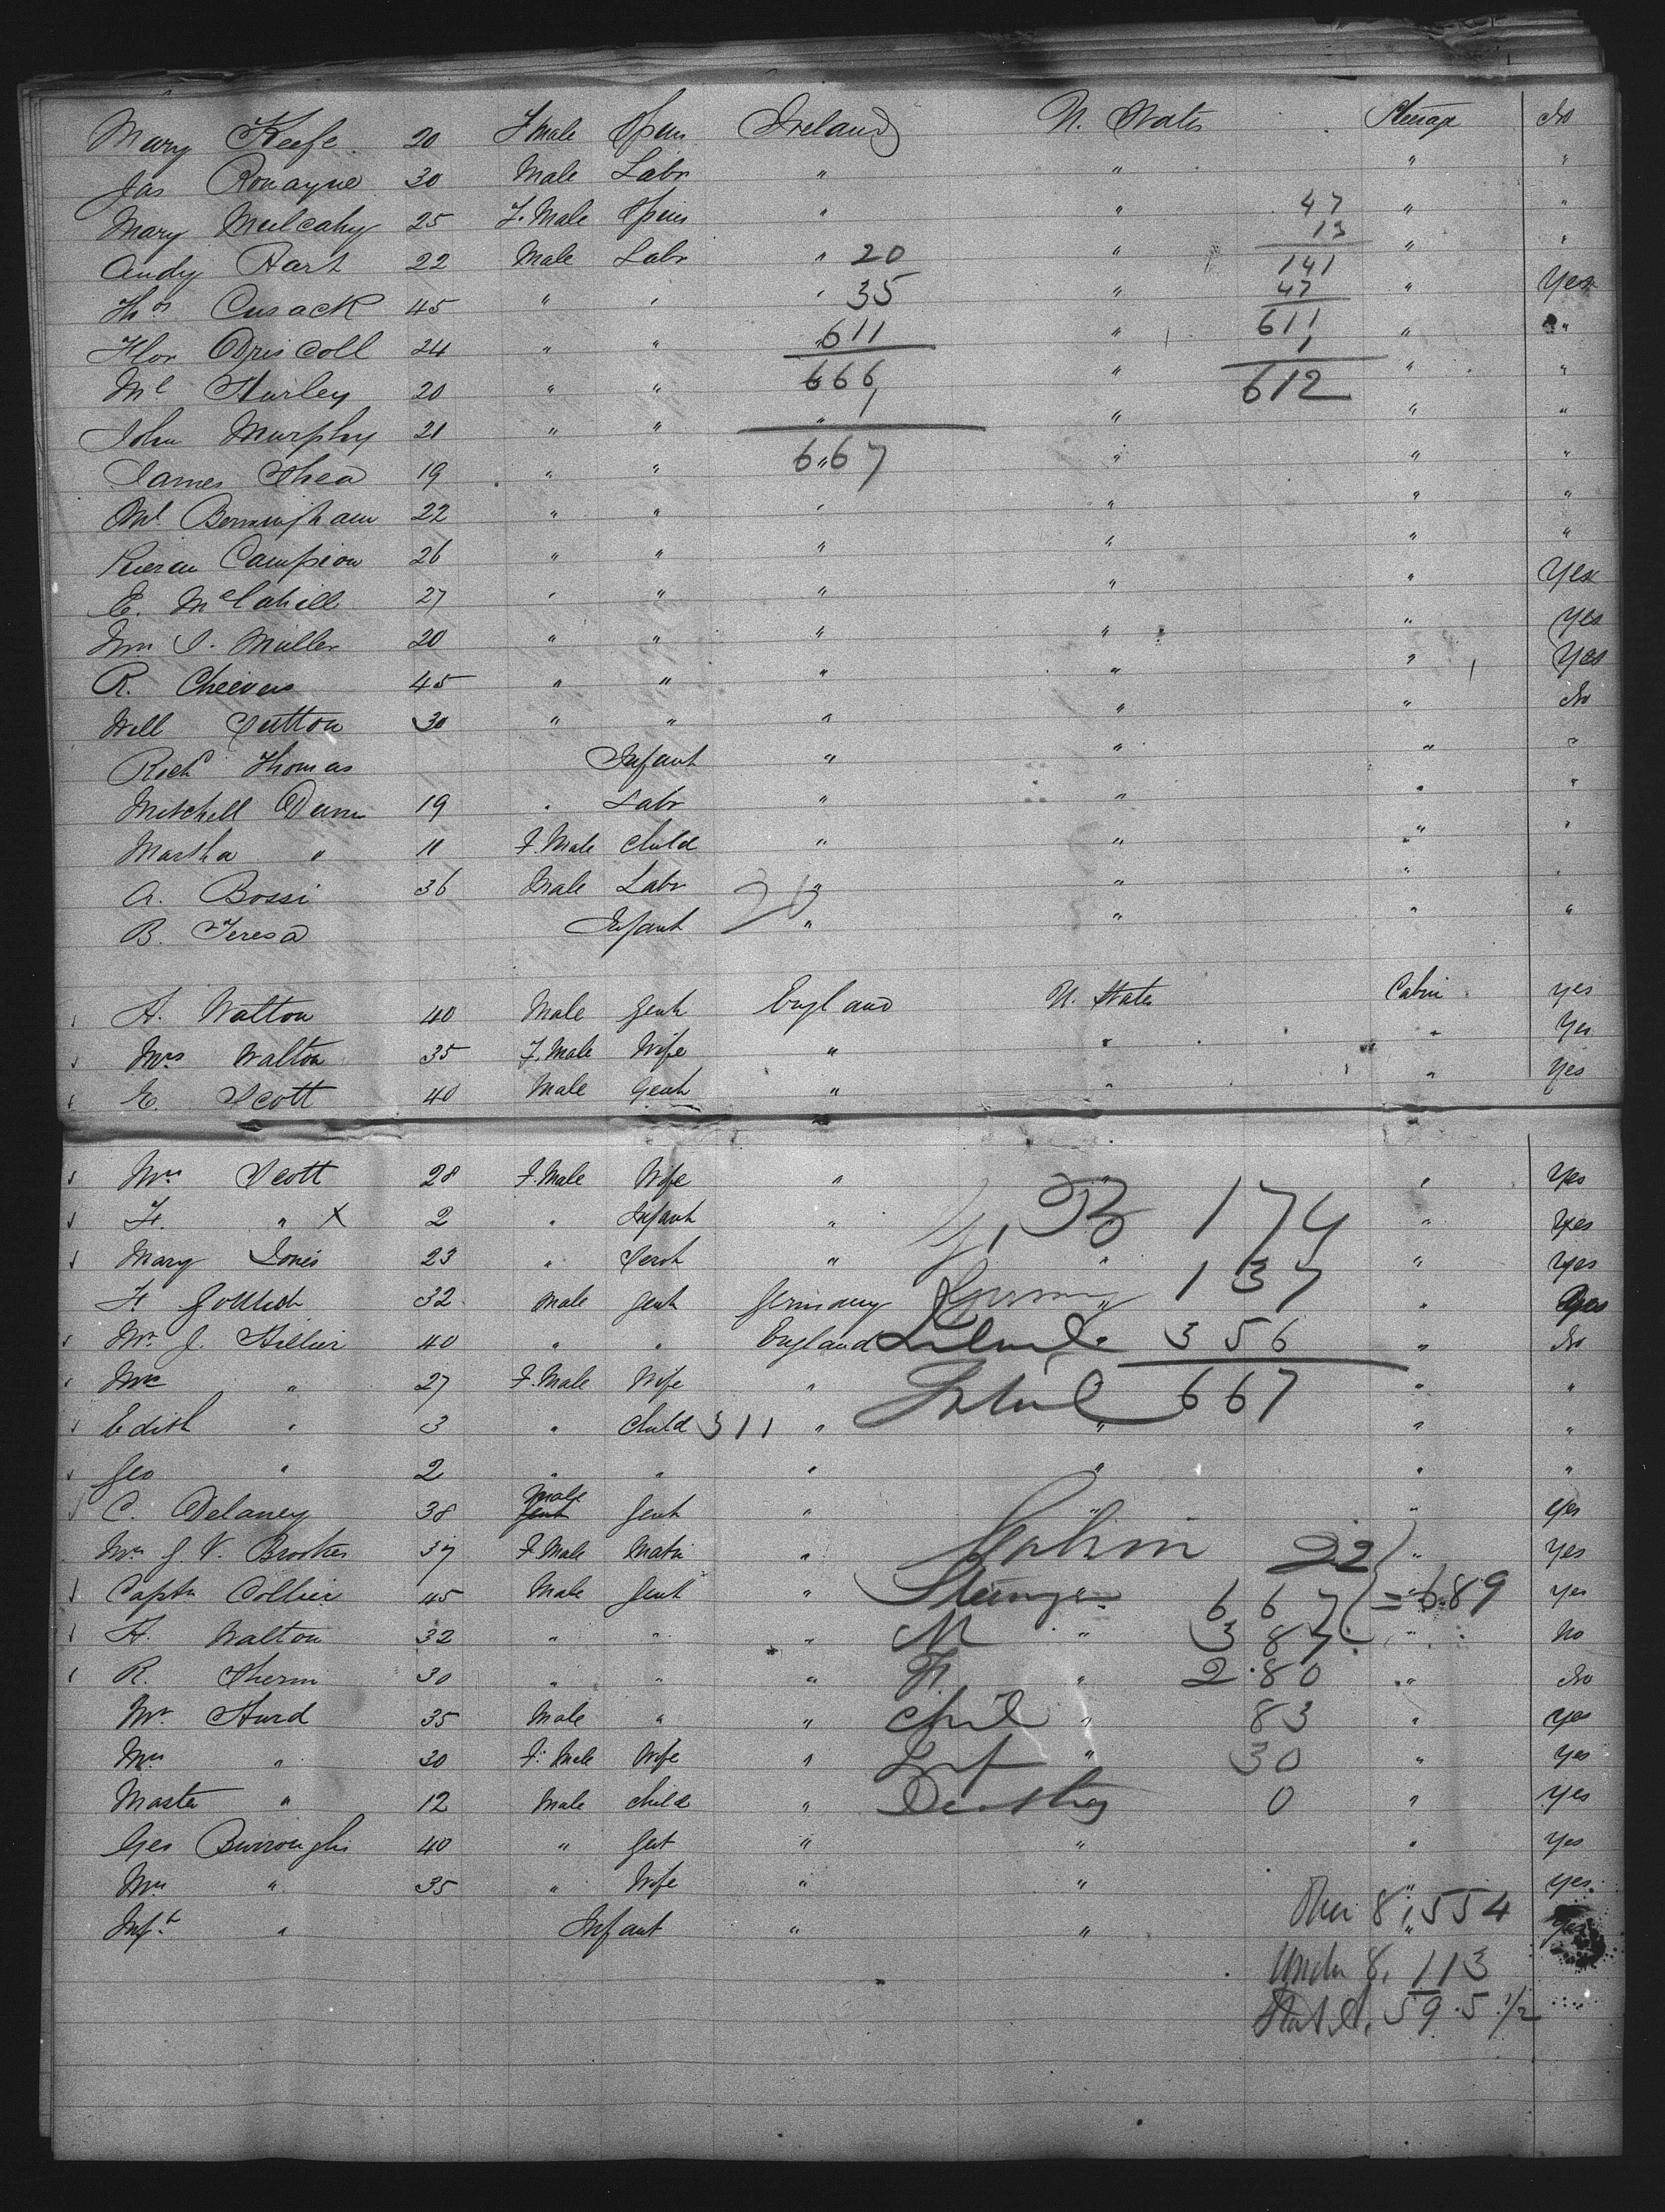 Mary Keefe 20 F male Spins Ireland U. States Steerage No
Jas Ronayne 30 Male Labr " " " "
Mary Mulcahy 25 F. Male Spins " " 47 " "
13
Andy Hart 22 Male Labr " 20 " 141 " "
Thos Cusack 45 " " " 35 " 47 " Yes
Flor Driscoll 24 " " " 611 " 611 " "
1
Ml Hurley 20 " " " 666 " 612 " "
John Murphy 21 " " " 1 " " "
James Shea 19 " " " 667 " " "
Ml Bermingham 22 " " " " " "
Kieran Campion 26 " " " " " "
E. McCahill 27 " " " " " Yes
Wm J. Muller 20 " " " " " Yes
R. Cheevers 45 " " " " " Yes
Will Sutton 30 " " " " " No
Richd Thomas Infant " " " "
Mitchell Dunn 19 " Labr " " " "
Martha " 11 F. Male Child " " " "
A. Bossi 36 Male Labr " " " "
20
B. Teresa Infant " " " "
A. Walton 40 Male Gent England U. States Cabin yes
Mrs Walton 35 F. Male Wife " " " Yes
E. Scott 40 Male Gent " " " Yes
Mrs Scott 28 F. Male Wife " " " Yes
F. " X 2 " Infant " G, B 174 " Yes
Mary Jones 23 " Servt " " " yes
F. Gottlieb 32 Male Gent Germany " 137 " Yes
Mr J. Hillier 40 " " England 356 " No
Mrs " 27 F. Male Wife " Total 667 " "
Edith " 3 " Child 311 " " " "
Geo " 2 " " " " " "
C. Delaney 38 Male Gent Gent " " " yes
Mrs J. V. Brookes 37 F Male Matn " Cabin 22 " Yes
Captn Collier 45 Male Gent " Steerage 667 = 689 " yes
A. Walton 32 " " " M " 387 " No
R. Sherin 30 " " " F. " 280 " No
Mr Hurd 35 Male " " Chil " 83 " yes
Mrs " 30 F. Male Wife " Inf " 30 " yes
Master " 12 Male Child " Deaths 0 " yes
Geo Burroughs 40 " Gent " " " yes
Mrs " 35 " Wife " " " yes
Inft " Infant " " Over 8, 554 " Yes
Under 8, 113
Stat. A, 59.5 1/2